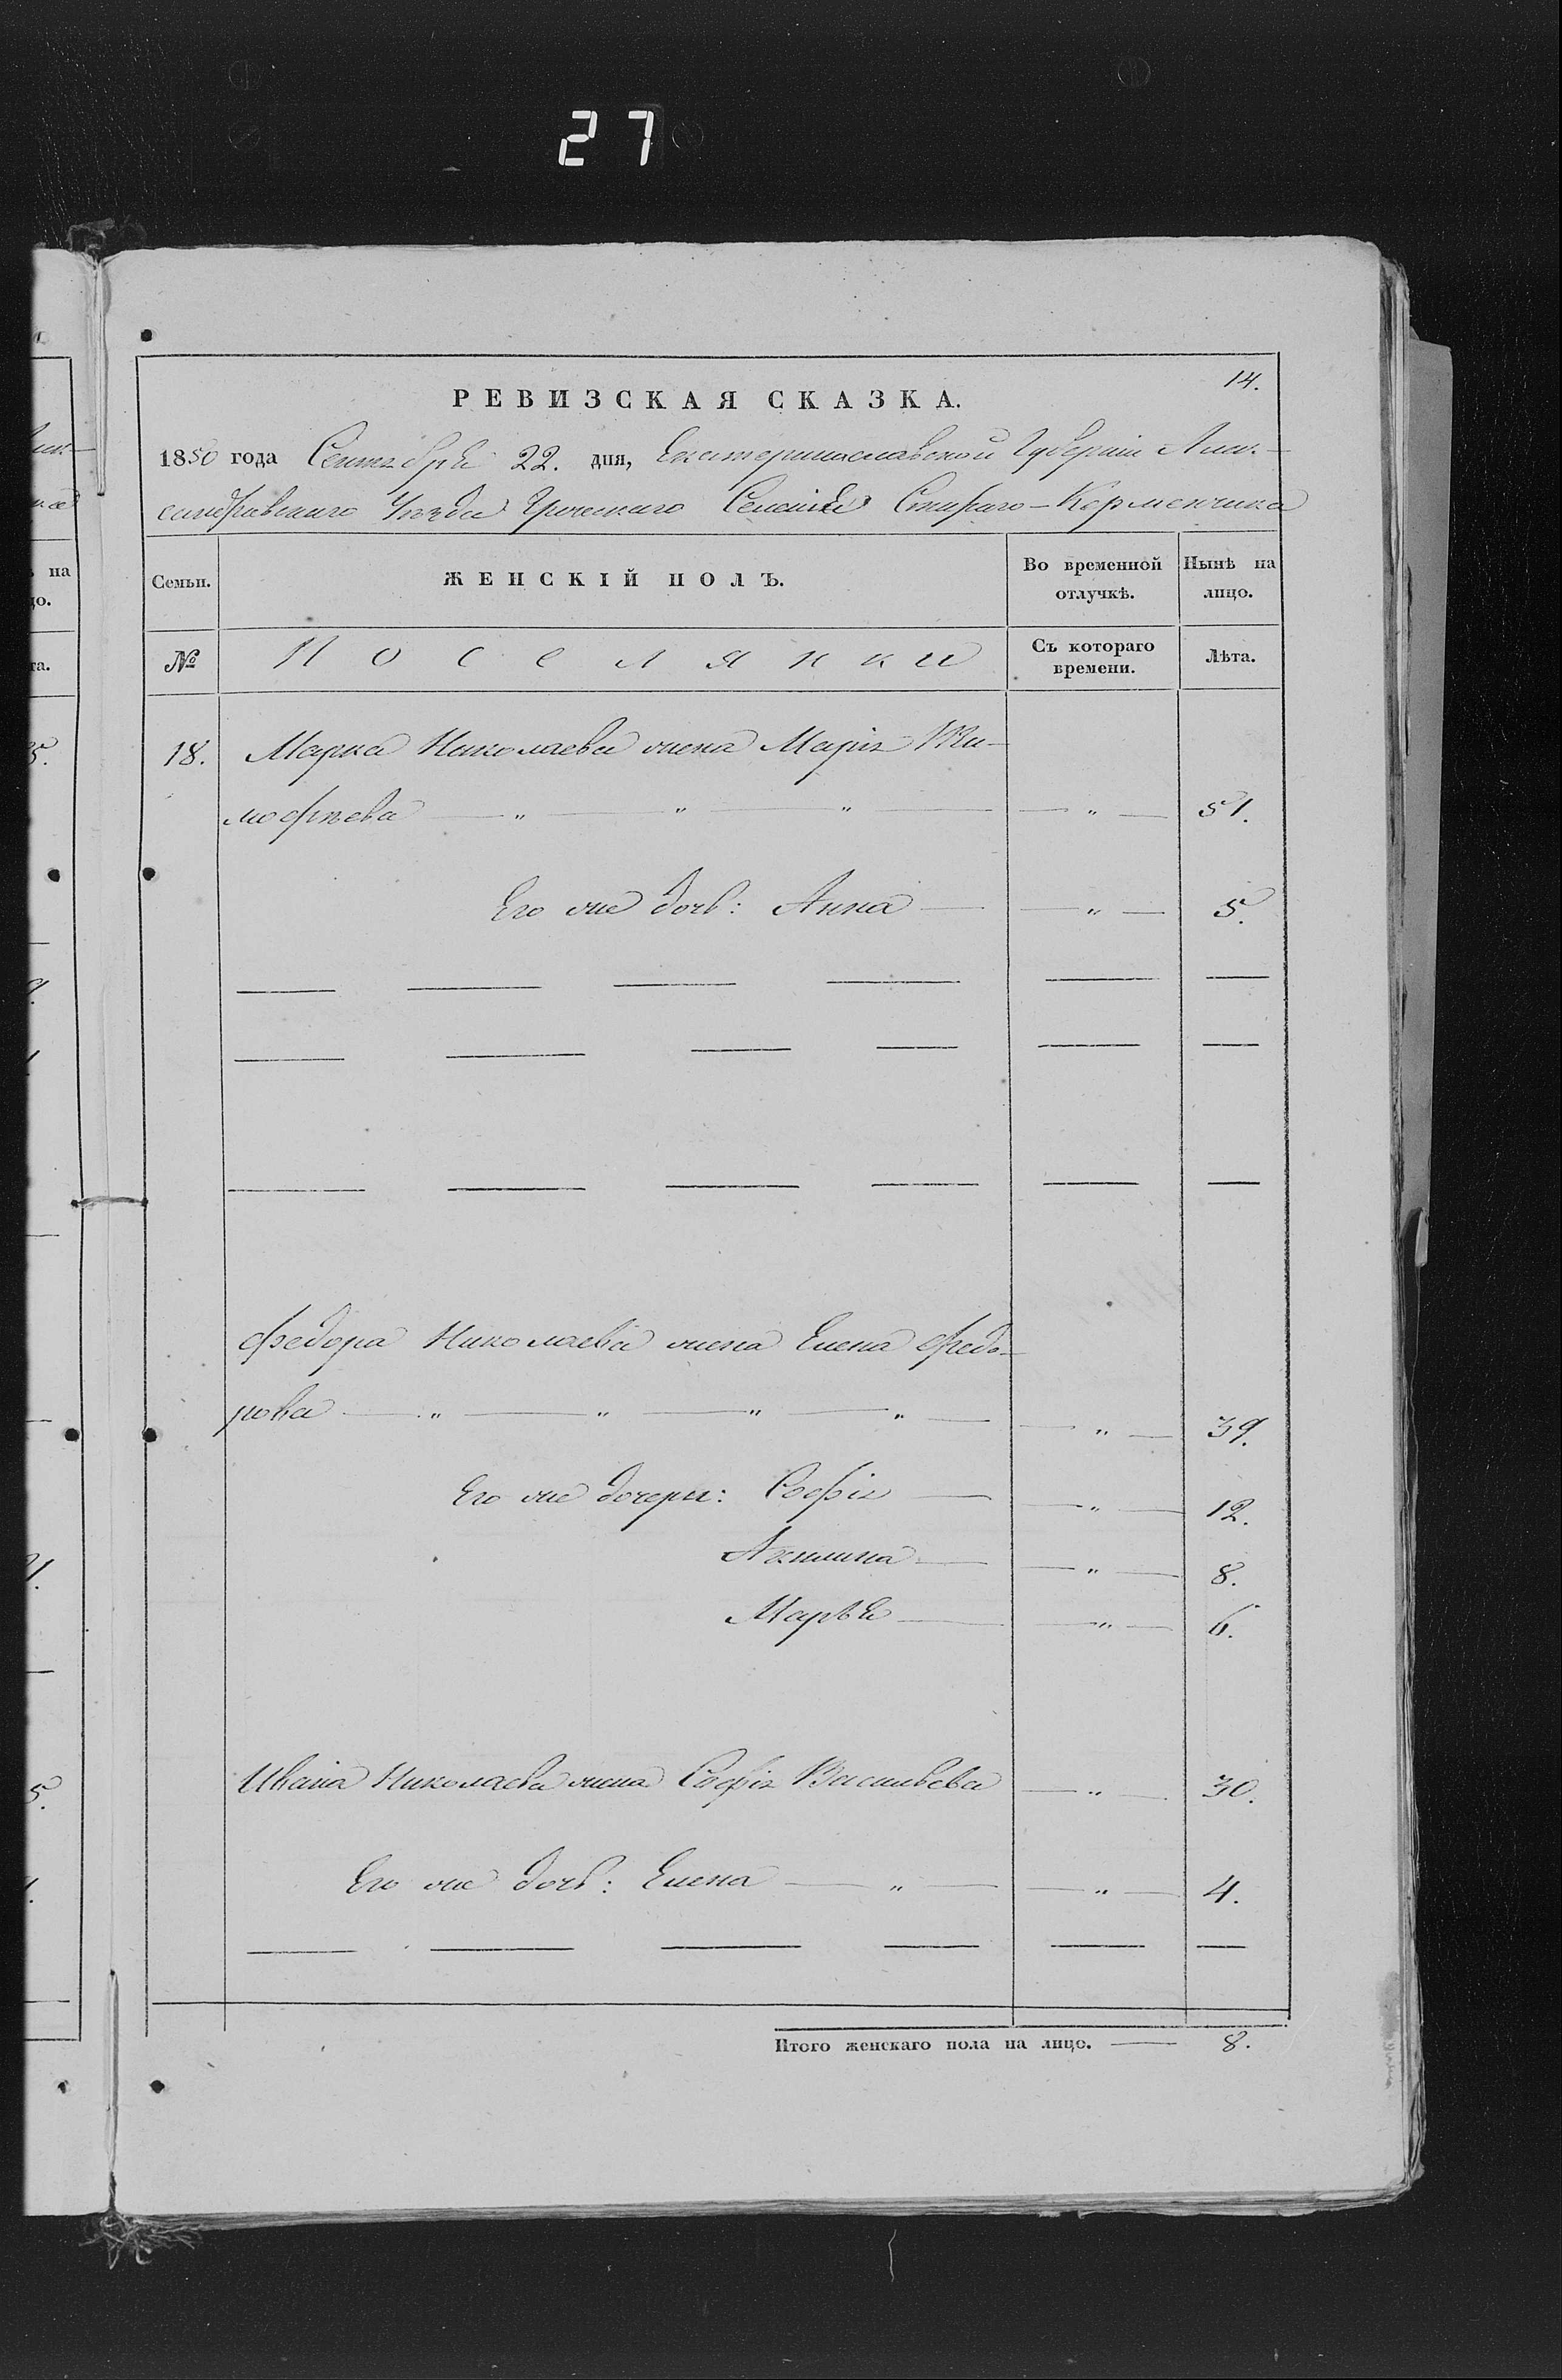 27
14.
РЕВИЗСКАЯ СКАЗКА.
1850 года Сентября 22. дня, Екатеринославской Губерніи Алек-
сандровскаго Уѣзда Греческаго Селенія Стараго-Керменчика
Семьи. ЖЕНСКІЙ ПОЛЪ. Во временной отлучкѣ. Нынѣ на лицо.
№ Поселянки Съ котораго времени. Лѣта.
18. Марка Николаева жена Марія Ти-
мофѣева — " — " — " — — " — 51.
Его же дочь: Анна — — " — 5.
Федора Николаева жена Елена Федо-
рова — " — " — " — " — — " — 39.
Его же дочери: Софія — — " — 12.
Акилина — — " — 8.
Марья — — " — 6.
Ивана Николаева жена Софія Васильева — " — 30.
Его же дочь: Елена — " — — " — 4.
Итого женскаго пола на лицо. — 8.